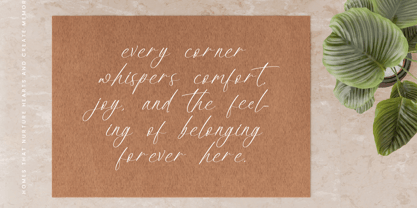 every corner
whispers comfort,
joy, and the feel-
ing of belonging
forever here.
HOMES THAT NURTURE HEARTS AND CREATE MEMOR